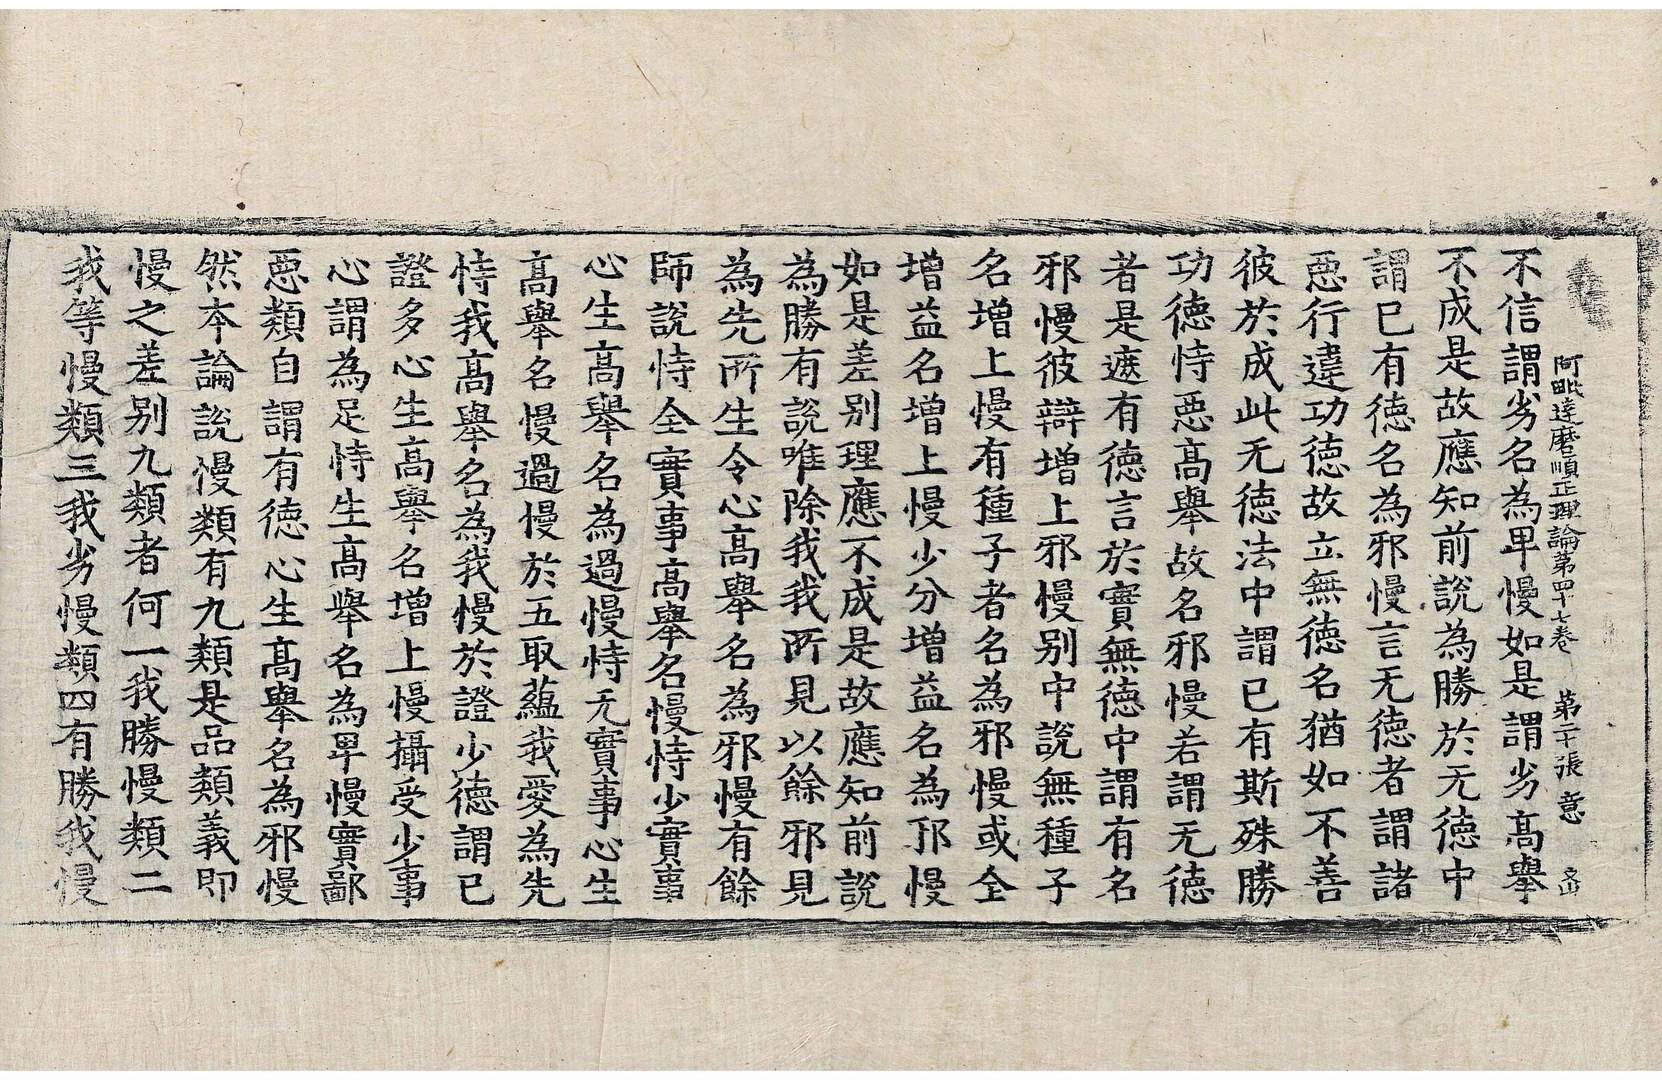 阿毗達磨順正理論第四十七卷 第二十張 意
不信謂劣名為卑慢如是謂劣高舉
不成是故應知前說為勝於无德中
謂已有德名為邪慢言无德者謂諸
惡行違功德故立無德名猶如不善
彼於成此无德法中謂已有斯殊勝
功德恃惡高舉故名邪慢若謂无德
者是遮有德言於實無德中謂有名
邪慢彼辯增上邪慢別中說無種子
名增上慢有種子者名為邪慢或全
增益名增上慢少分增益名為邪慢
如是差別理應不成是故應知前說
為勝有說唯除我我所見以餘邪見
為先所生令心高舉名為邪慢有餘
師說恃全實事高舉名慢恃少實事
心生高舉名為過慢恃无實事心生
高舉名慢過慢於五取蘊我愛為先
恃我高舉名為我慢於證少德謂已
證多心生高舉名增上慢攝受少事
心謂為足恃生高舉名為卑慢實鄙
惡類自謂有德心生高舉名為邪慢
然本論說慢類有九類是品類義即
慢之差別九類者何一我勝慢類二
我等慢類三我劣慢類四有勝我慢